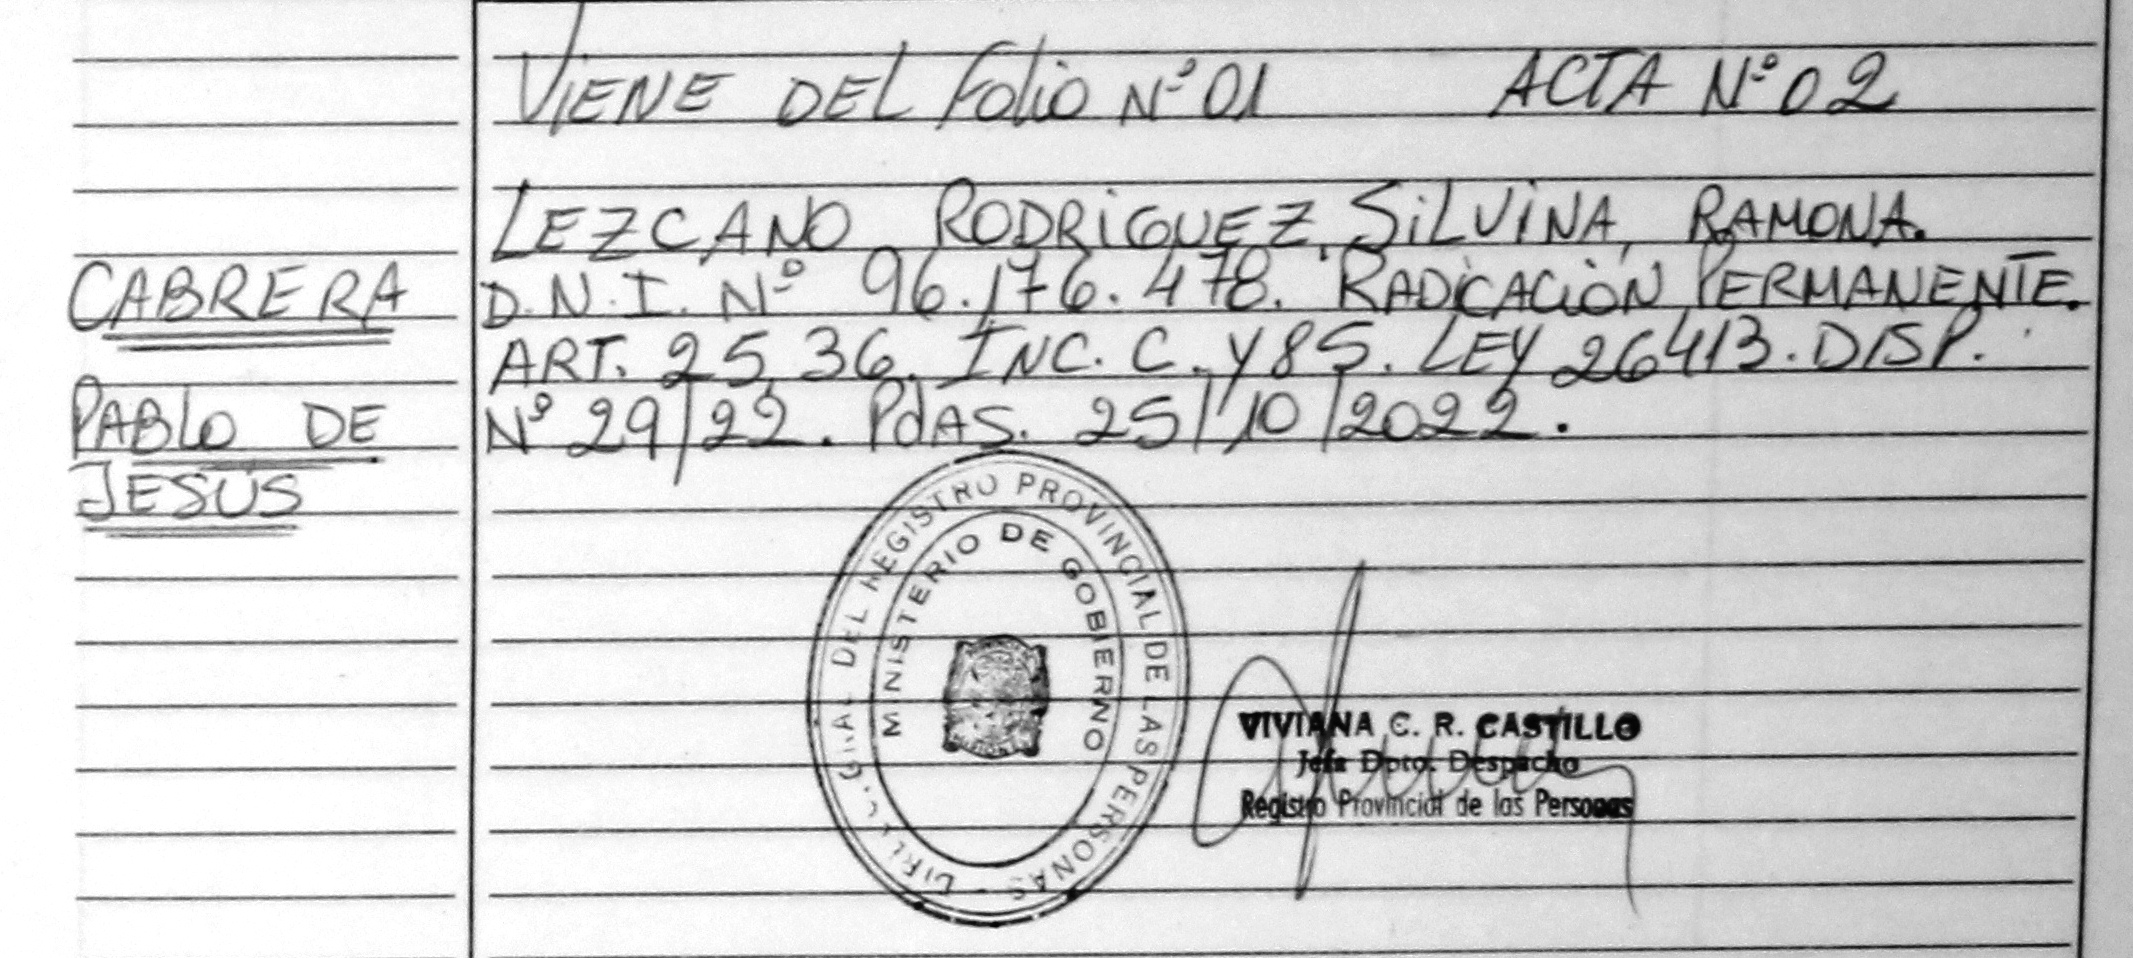 VIENE DEL Folio Nº 01 ACTA Nº 02
LEZCANO RODRIGUEZ, SILVINA RAMONA.
D.N.I. Nº 96.176.478. RADICACIÓN PERMANENTE.
ART. 25, 36. INC. C. Y 85. LEY 26413. DISP.
Nº 29/22. PdAS. 25/10/2022.
CABRERA
PABLO DE
JESÚS
DEL REGISTRO PROVINCIAL DE LAS PERSONAS
MINISTERIO DE GOBIERNO
VIVIANA C. R. CASTILLO
Jefa Dpto. Despacho
Registro Provincial de las Personas